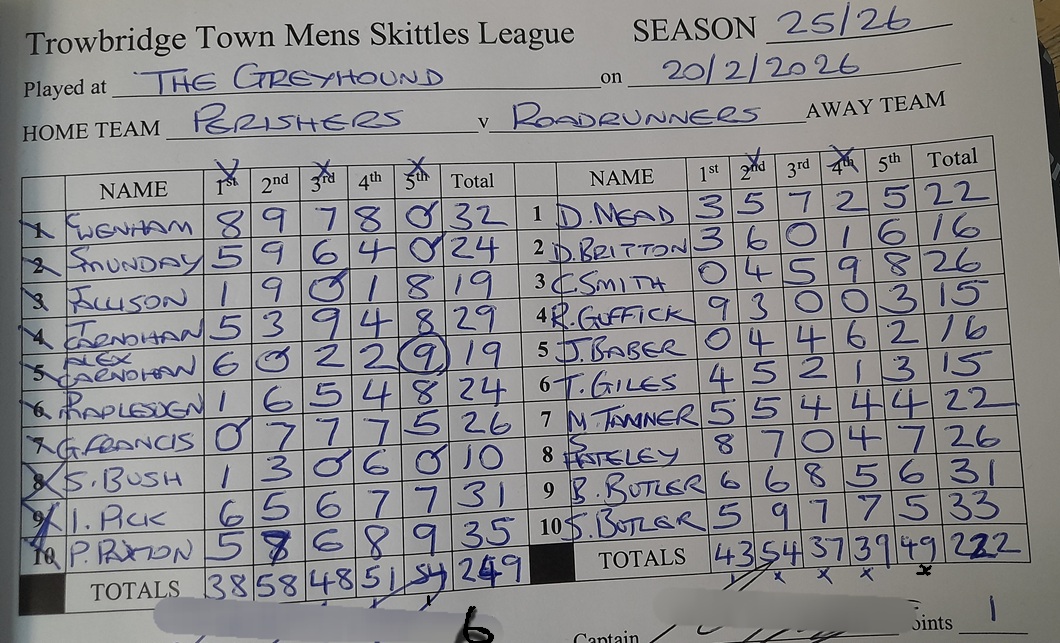 Trowbridge Town Mens Skittles League SEASON 25/26
Played at THE GREYHOUND on 20/2/2026
HOME TEAM PERISHERS v ROADRUNNERS AWAY TEAM
NAME 1st 2nd 3rd 4th 5th Total NAME 1st 2nd 3rd 4th 5th Total
1 WENHAM 8 9 7 8 0 32 1 D. MEAD 3 5 7 2 5 22
2 S MUNDAY 5 9 6 4 0 24 2 D. BRITTON 3 6 0 1 6 16
3 J ALLISON 1 9 0 1 8 19 3 C SMITH 0 4 5 9 8 26
4 J CARNOHAN 5 3 9 4 8 29 4 R. GUFFICK 9 3 0 0 3 15
5 ALEX CARNOHAN 6 0 2 2 9 19 5 J. BABER 0 4 4 6 2 16
6 R MAPLESDEN 1 6 5 4 8 24 6 T. GILES 4 5 2 1 3 15
7 G. FRANCIS 0 7 7 7 5 26 7 M. TANNER 5 5 4 4 4 22
8 S. BUSH 1 3 0 6 0 10 8 S HATELEY 8 7 0 4 7 26
9 I. PICK 6 5 6 7 7 31 9 B. BUTLER 6 6 8 5 6 31
10 P. PAXTON 5 7 6 8 9 35 10 S. BUTLER 5 9 7 7 5 33
TOTALS 38 58 48 51 54 249 TOTALS 43 54 37 39 49 222
6 Captain oints 1